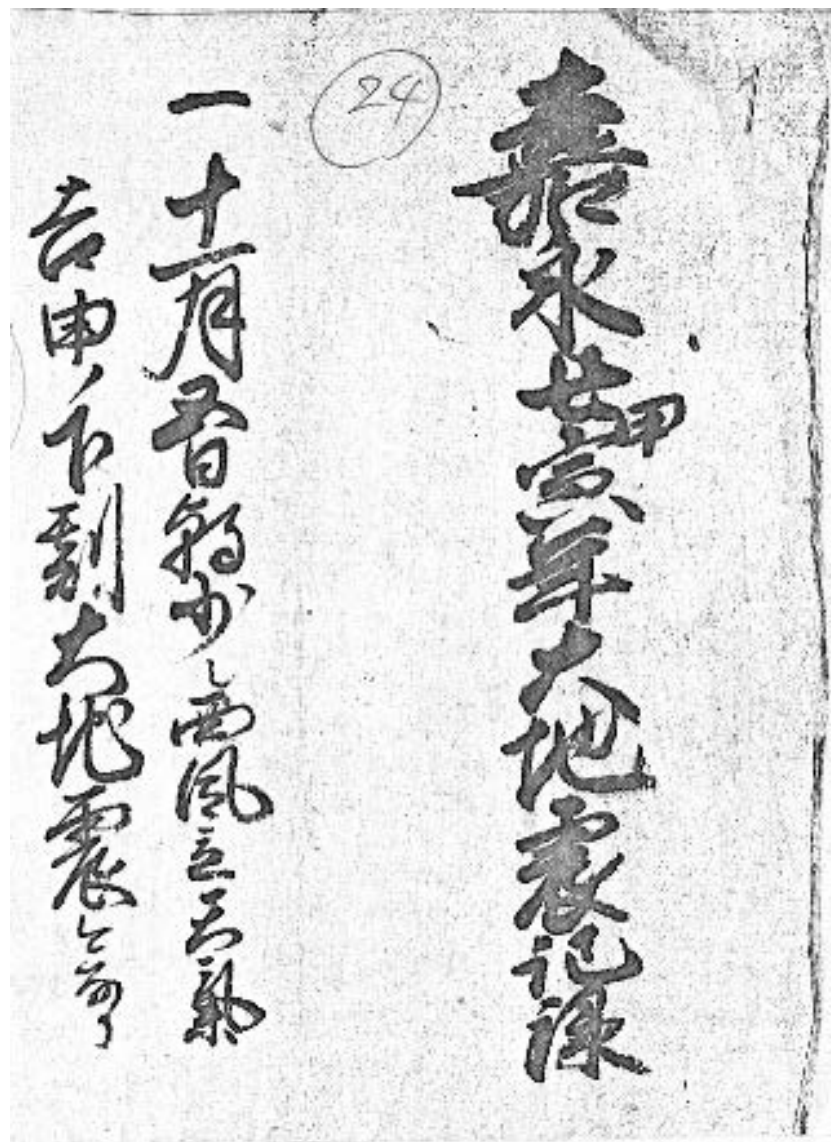 嘉永七甲寅年大地震記録
24
一十一月五日朝少〻西風立天気
吉申ノ下刻大地震